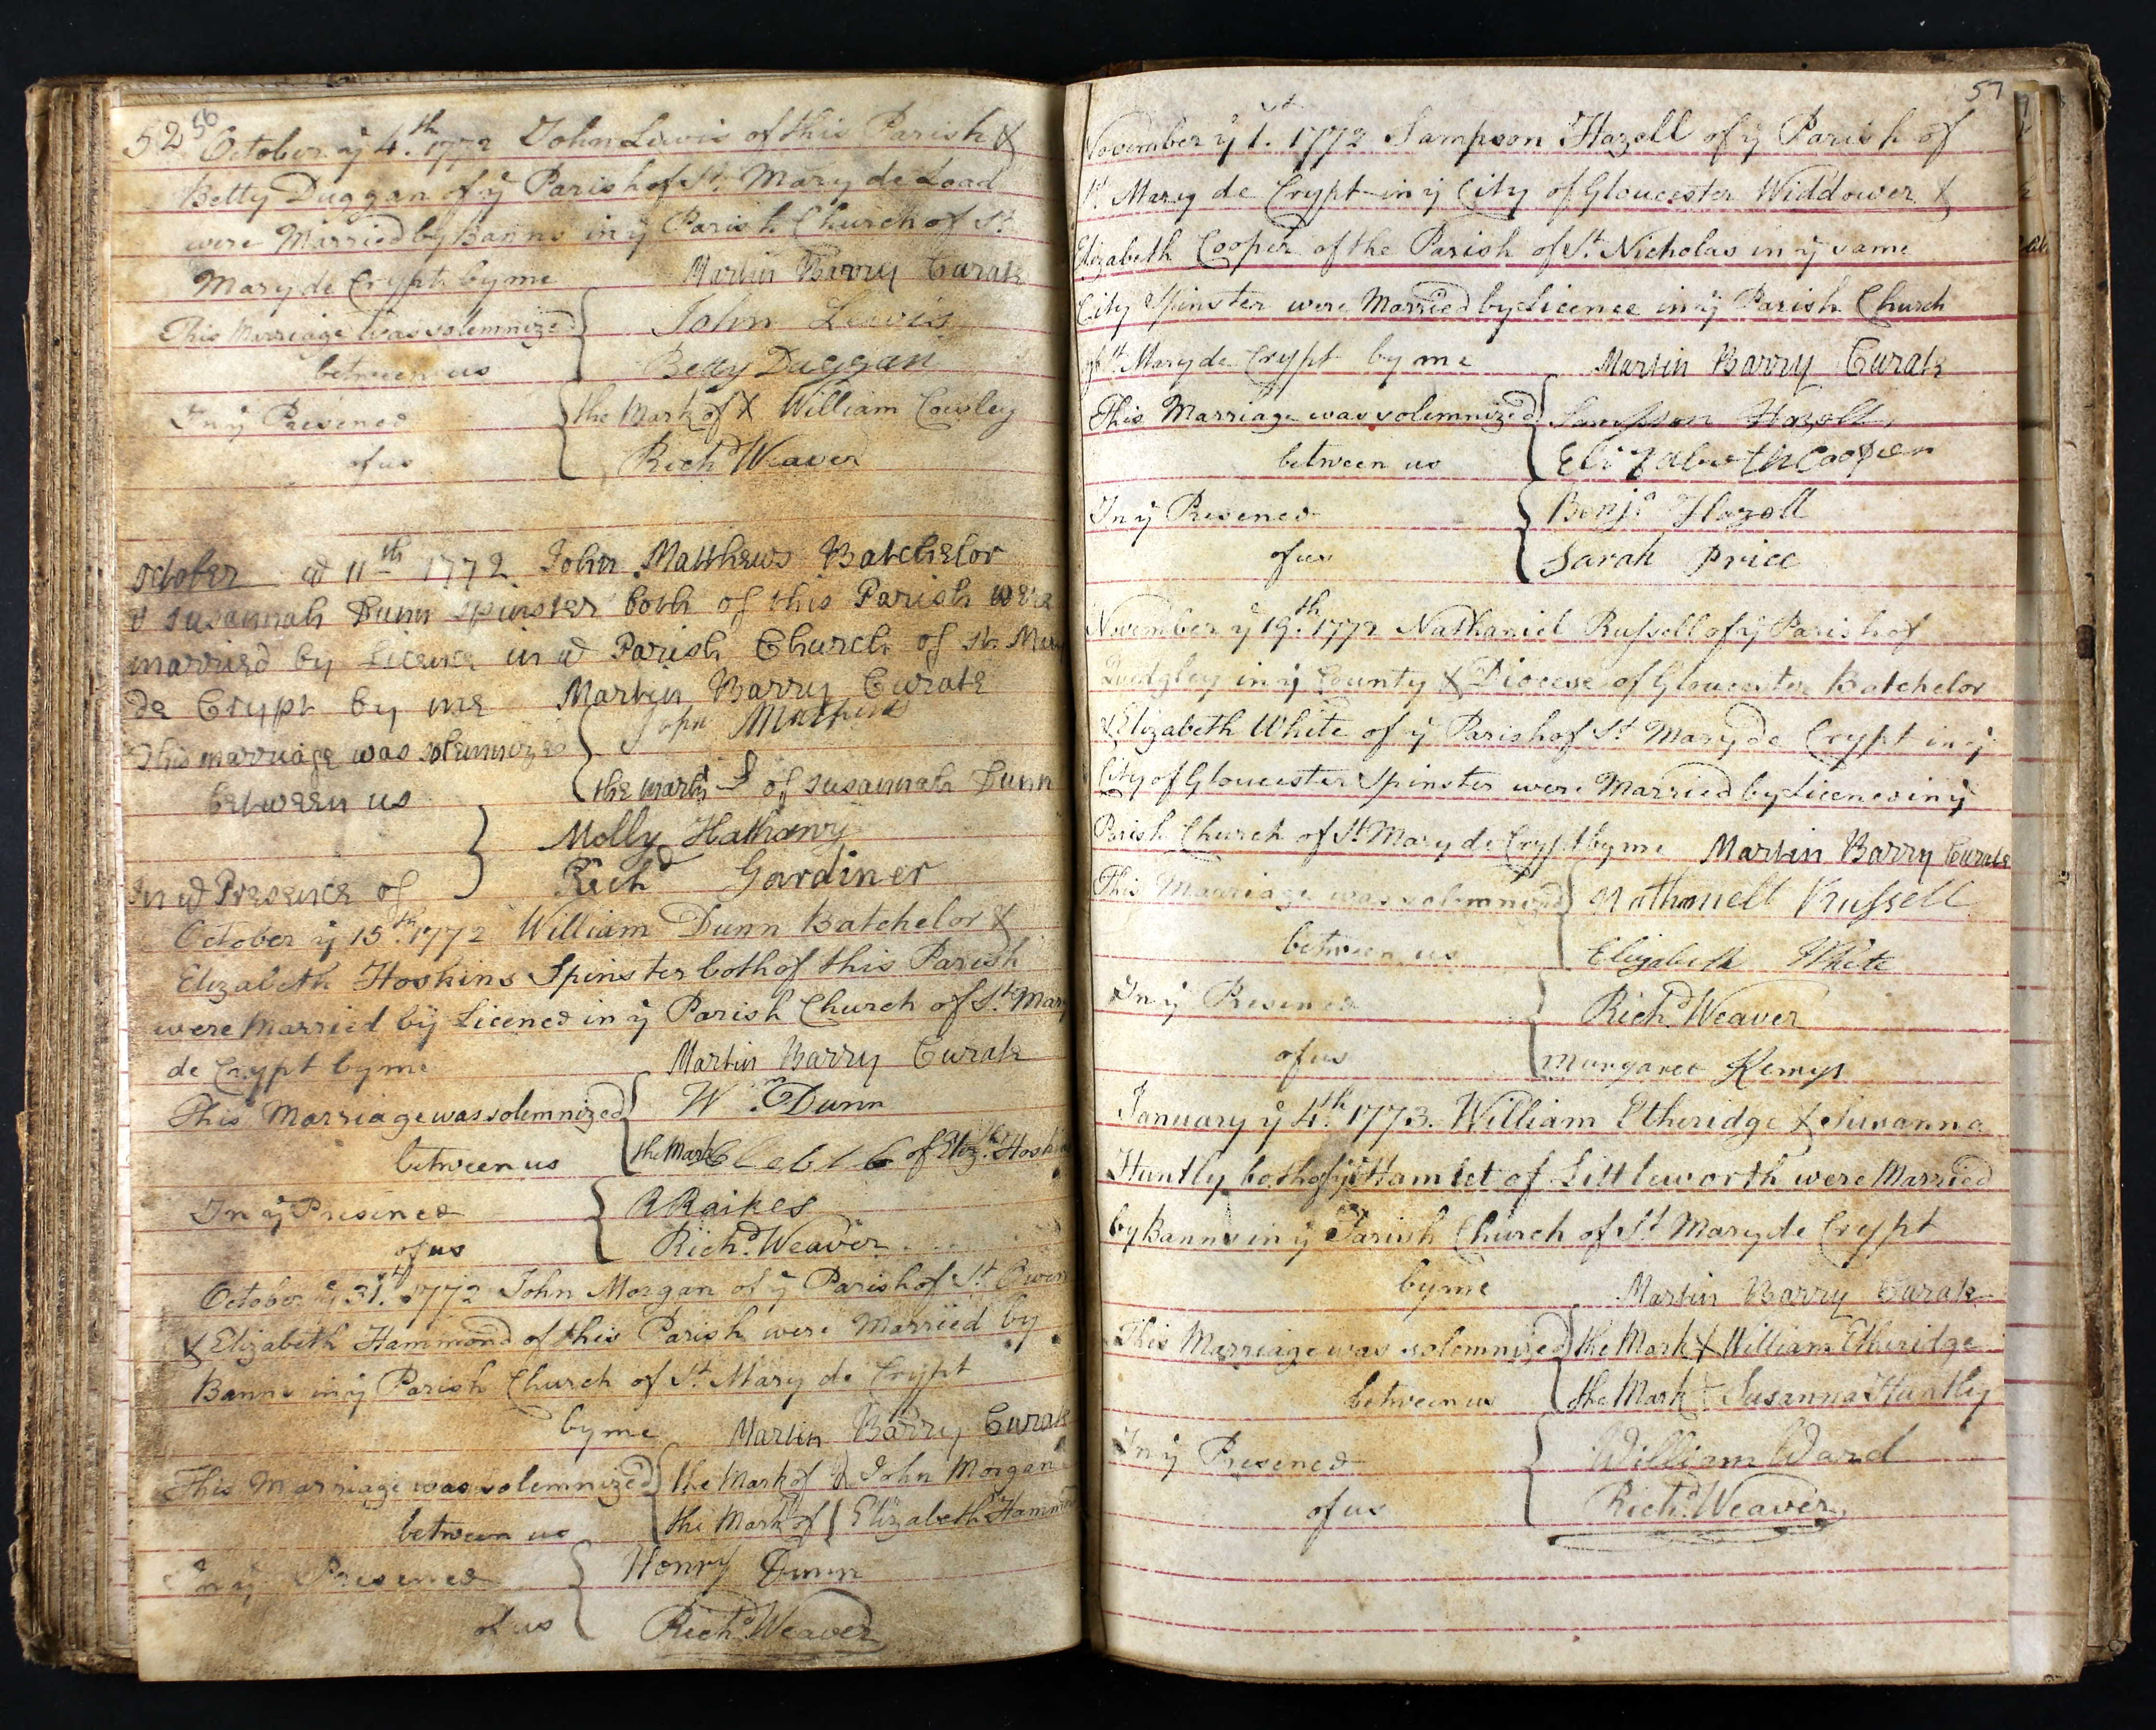 52 56
October ẏ 4.th 1772 John Lewis of this Parish &
Betty Duggan of ẏ Parish of St. Mary de Load
were Married by Banns in ẏ Parish Church of St
Mary de Crypt by me Martin Barry Curate
This Marriage was solemnized John Lewis
between us Betty Duggan
In ẏ Presence the Mark of X William Cowley
of us Richd Weaver
October ye 11th 1772 John Matthews Batchelor
& Susannah Dunn spinster both of this Parish were
married by Licence in ye Parish Church of St. Mary
de Crypt by me Martin Barry Curate
This marriage was solemnized John
between us the mark of Susannah Dunn
Molly Hathaway
In ye Presence of Richd Gardiner
October ẏ 15.th 1772 William Dunn Batchelor &
Elizabeth Hoskins Spinster both of this Parish
were Married by Licence in ẏ Parish Church of St. Mary
de Crypt by me Martin Barry Curate
This Marriage was solemnized Wm. Dunn
between us the Mark of Eliz.th Hoskins
In ẏ Presence R Raikes
of us Richd. Weaver
October ẏ 31.st 1772 John Morgan of ẏ Parish of St. Owen
& Elizabeth Hammond of this Parish were Married by
Banns in ẏ Parish Church of St. Mary de Crypt
by me Martin Barry Curate
This Marriage was solemnized the Mark of John Morgan
between us the Mark of Elizabeth Hammond
In ẏ Presence Henry Dunn
of us Richd. Weaver
57
November ẏ 1.st 1772 Sampson Hazell of ẏ Parish of
St. Mary de Crypt in ẏ City of Gloucester Widdower &
Elizabeth Cooper of the Parish of St. Nicholas in ẏ same
City Spinster were Married by Licence in ẏ Parish Church
of St. Mary de Crypt by me Martin Barry Curate
This Marriage was solemnized Sampson Hazell
between us Elizabeth Cooper
In ẏ Presence Benj.n Hazell
of us Sarah Price
November ẏ 19.th 1772 Nathaniel Russell of ẏ Parish of
in ẏ County & Diocese of Gloucester Batchelor
& Elizabeth White of ẏ Parish of St. Mary de Crypt in ẏ
City of Gloucester Spinster were Married by Licence in ẏ
Parish Church of St. Mary de Crypt by me Martin Barry Curate
This Marriage was solemnized Nathanell Russell
between us Elizabeth White
In ẏ Presence Richd. Weaver
of us Margaret Kemys
January ẏ 4.th 1773. William Etheridge & Susanna
Huntly both of ẏ Hamlet of Littleworth were Married
by Banns in ẏ Parish Church of St. Mary de Crypt
by me Martin Barry Curate
This Marriage was solemnized the Mark X William Etheridge
between us the Mark Susanna Huntley
In ẏ Presence William Ward
of us Richd. Weaver